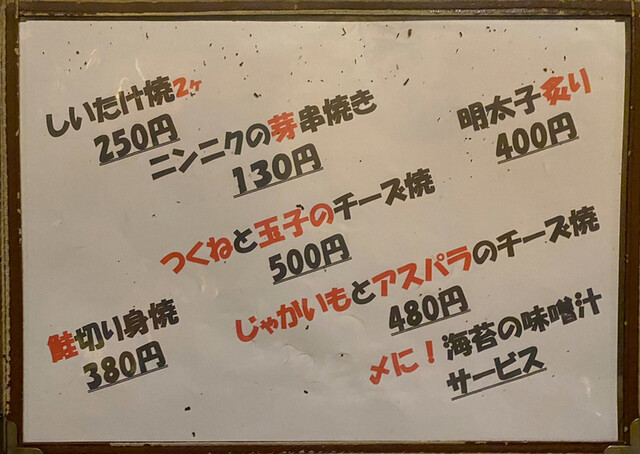 しいたけ焼2ヶ
250円
ニンニクの芽串焼き
130円
明太子炙り
400円
つくねと玉子のチーズ焼
500円
じゃがいもとアスパラのチーズ焼
480円
鮭切り身焼
380円
〆に！海苔の味噌汁
サービス